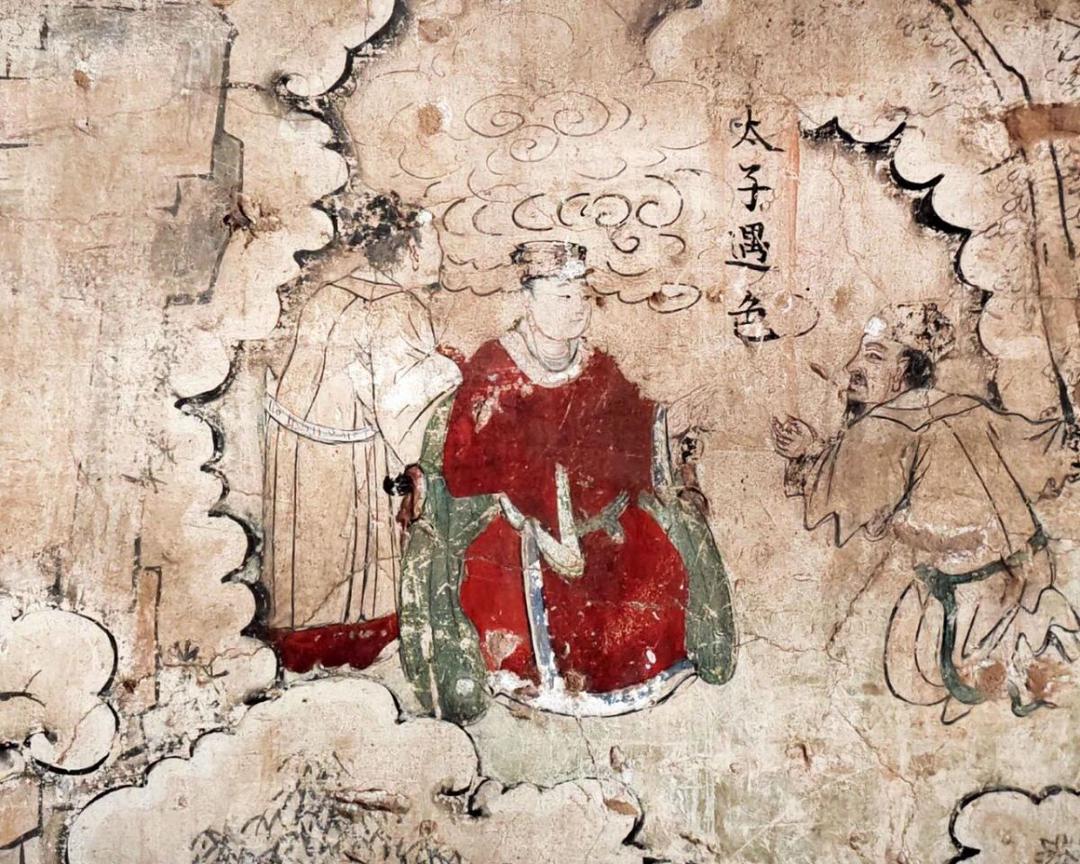 太子遇色